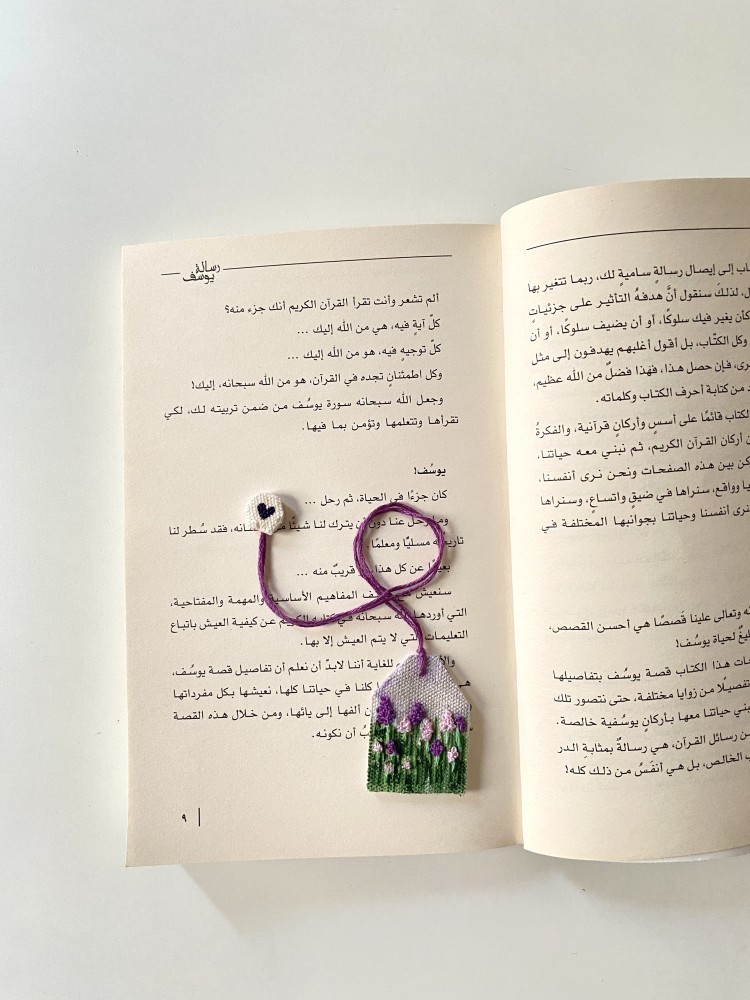 إلى إيصال رسالةٍ ساميةٍ لك، ربما تتغير بها
لذلكَ سنقول أنَّ هدفهُ التأثير على جزئياتٍ
كان يغير فيك سلوكًا، أو أن يضيف سلوكًا، أو أن
وكل الكتّاب، بل أقول أغلبهم يهدفون إلى مثل
فإن حصل هذا، فهذا فضلٌ من الله عظيم،
من كتابة أحرف الكتاب وكلماته.
الكتاب قائمًا على أسسٍ وأركانٍ قرآنية، والفكرةُ
أركان القرآن الكريم، ثم نبني معه حياتنا،
بين هذه الصفحات ونحن نرى أنفسنا،
وواقع، سنراها في ضيقٍ واتساعٍ، وسنراها
نرى أنفسنا وحياتنا بجوانبها المختلفة في
وتعالى علينا قَصصًا هي أحسن القصص،
لحياة يوسُف!
هذا الكتاب قصة يوسُف بتفاصيلها
تفصيلًا من زوايا مختلفة، حتى نتصور تلك
حياتنا معها بأركانٍ يوسُفية خالصة.
رسائل القرآن، هي رسالةٌ بمثابةِ الدر
الخالص، بل هي أنفَسُ من ذلك كله!
رسالة
يوسف
ألم تشعر وأنت تقرأ القرآن الكريم أنك جزء منه؟
كلّ آيةٍ فيه، هي من الله إليك ...
كلّ توجيهٍ فيه، هو من الله إليك ...
وكل اطمئنانٍ تجده في القرآن، هو من الله سبحانه، إليك!
وجعل الله سبحانه سورة يوسُف من ضمن تربيته لك، لكي
تقرأها وتتعلمها وتؤمن بما فيها.
يوسُف!
كان جزءًا في الحياة، ثم رحل ...
وما رحل عنا دون أن يترك لنا شيئًا فقد سُطر لنا
مسليًّا ومعلمًا.
عن كل هذا، قريبٌ منه ...
سنعيش المفاهيم الأساسية والمهمة والمفتاحية،
التي أوردها الله سبحانه في كتابه الكريم عن كيفية العيش باتباع
التعليمات التي لا يتم العيش إلا بها.
للغاية أننا لابدّ أن نعلم أن تفاصيل قصة يوسُف،
كلنا في حياتنا كلها، نعيشها بكل مفرداتها
ألفها إلى يائها، ومن خلال هذه القصة
أن نكونه.
٩